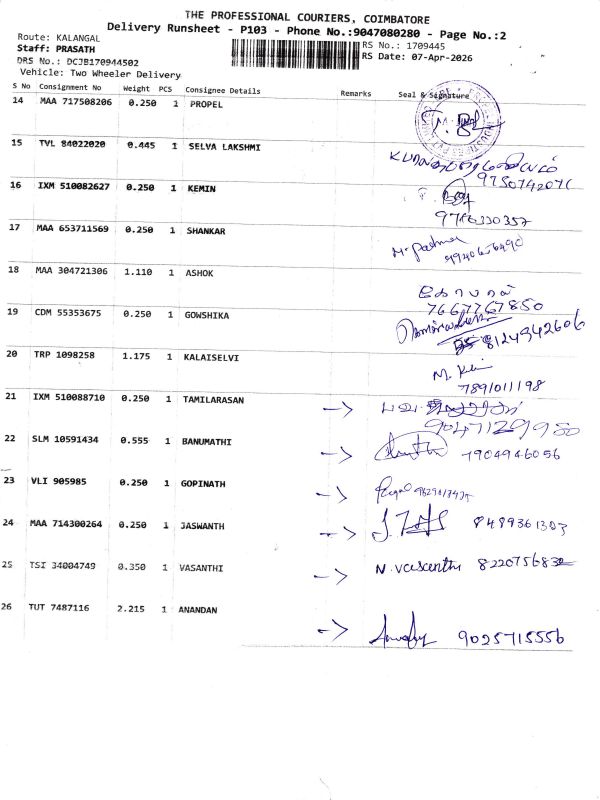 THE PROFESSIONAL COURIERS, COIMBATORE
Delivery Runsheet - P103 - Phone No.:9047080280 - Page No.:2
Route: KALANGAL
Staff: PRASATH
DRS No.: DCJB170944502
Vehicle: Two Wheeler Delivery
RS No.: 1709445
RS Date: 07-Apr-2026
S No Consignment No Weight PCS Consignee Details Remarks Seal & Signature
14 MAA 717508206 0.250 1 PROPEL
15 TVL 84022020 0.445 1 SELVA LAKSHMI
16 IXM 510082627 0.250 1 KEMIN
17 MAA 653711569 0.250 1 SHANKAR M. Padma
18 MAA 304721306 1.110 1 ASHOK
கோபால்
7667767850
19 CDM 55353675 0.250 1 GOWSHIKA
8124942606
20 TRP 1098258 1.175 1 KALAISELVI
7891011198
21 IXM 510088710 0.250 1 TAMILARASAN →
9047129950
22 SLM 10591434 0.555 1 BANUMATHI → 7904946056
23 VLI 905985 0.250 1 GOPINATH →
24 MAA 714300264 0.250 1 JASWANTH → 8489361303
25 TSI 34004749 0.350 1 VASANTHI → N. Vasanthi 8220756832
26 TUT 7487116 2.215 1 ANANDAN → 9025715556